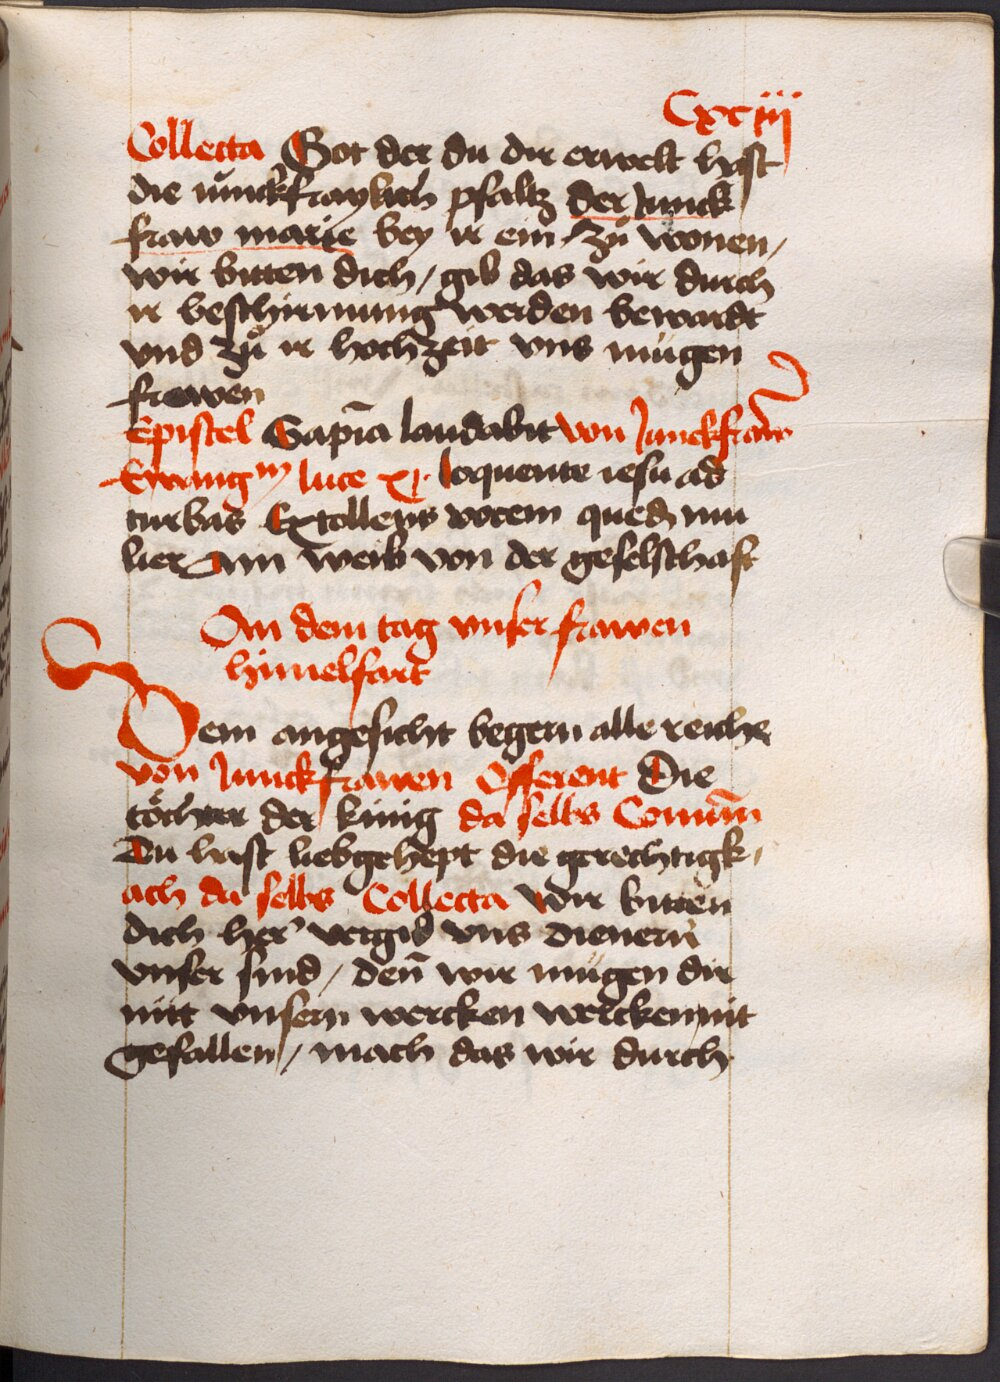 Cxciij
Collecta Got der du dir erwelt hast
die iunckfraylich pfaltz der Junck
fraw marie bey ir ein zů wonen /
wir bitten dich / gib das wir durch
ir beschirmung werden bewardt
vnd zů ir hochzeit vns mügen
frewen
Epistel Sapīa laudabit von Junckfraw
Ewangm luce xj Loquente iesu ad
turbas Extollens vocem quedā mu
lier Ain weib von der geselschaft
An dem tag vnser frawen
himelfart
Dein angesicht begern alle reiche
von Junckfrawen Offerent Die
töchter der künig da selbs Comūn
Du hast liebgehept die gerechtigk /
ach da selbs Collecta Wir bitten
dich her vergib vns dienern
vnser sünd / den̄ wir mügen dir
mitt vnsern wercken wercken nit
gefallen / mach das wir durch